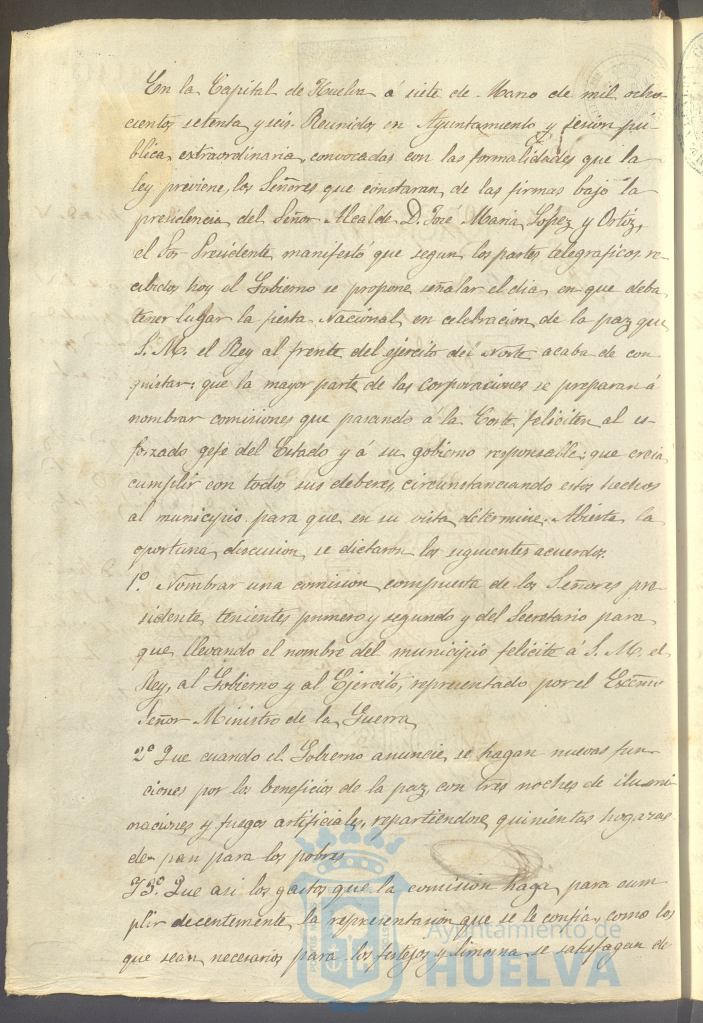 En la Capital de Huelva á siete de Marzo de mil ocho-
cientos setenta y seis. Reunidos en Ayuntamiento y sesion pú-
blica extraordinaria, convocadas con las formalidades que la
ley previene, los Señores que constaran de las firmas bajo la
presidencia del Señor Alcalde D. José Maria Lopez y Ortiz,
el Sor Presidente manifestó que segun los partes telegraficos re-
cibidos hoy el Gobierno se propone señalar el dia en que deba
tener lugar la fiesta Nacional en celebracion de la paz que
S. M. el Rey al frente del ejercito del Norte acaba de con-
quistar; que la mayor parte de las corporaciones se preparan á
nombrar comisiones que pasando á la Corte feliciten al es-
forzado gefe del Estado y á su gobierno responsable; que creia
cumplir con todos sus deberes, circunstanciando estos hechos
al municipio para que en su vista determine. Abierta la
oportuna discusion se dictaron los siguientes acuerdos.
1º. Nombrar una comision compuesta de los Señores pre-
sidente, tenientes primero y segundo y del Secretario para
que llevando el nombre del municipio felicite á S. M. el
Rey, al Gobierno y al Ejercito, representado por el Excmo
Señor Ministro de la Guerra
2º Que cuando el Gobierno anuncie se hagan nuevas fun-
ciones por los beneficios de la paz, con tres noches de ilumi-
naciones y fuegos artificiales, repartiendose quinientas hogazas
de pan para los pobres
Y 3º. Que asi los gastos que la comision haga para cum-
plir decentemente la representacion que se le confia, como los
que sean necesarios para los festejos y limosna se satisfagan de
Ayuntamiento de
HUELVA